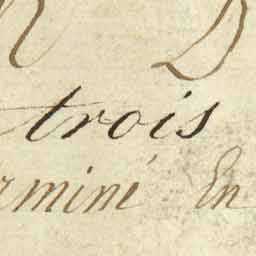 trois
rminé En